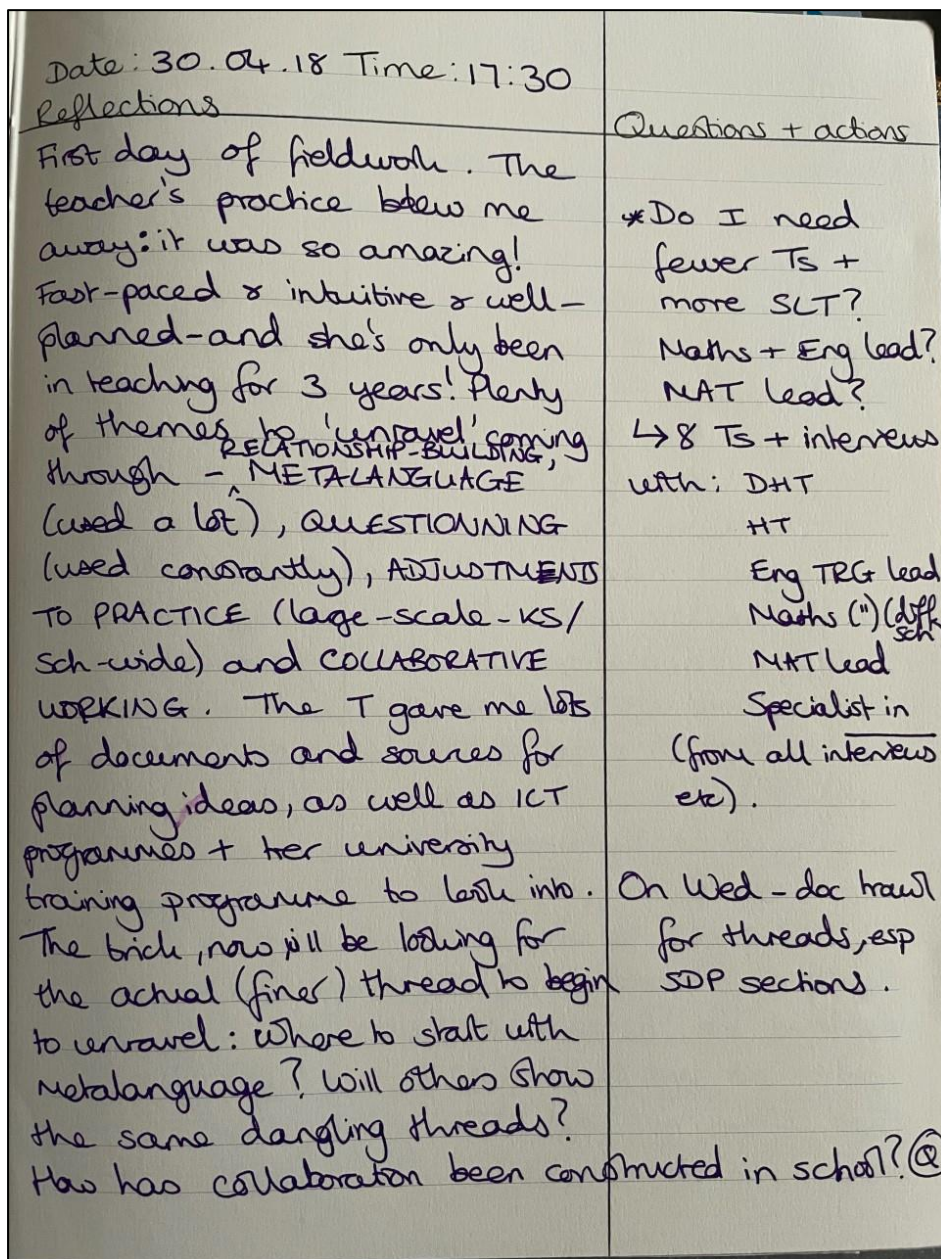 Date: 30.04.18 Time: 17:30
Reflections
First day of fieldwork. The
teacher's practice blew me
away: it was so amazing!
Fast-paced & intuitive & well-
planned - and she's only been
in teaching for 3 years! Plenty
of themes to 'unravel' coming
through - RELATIONSHIP-BUILDING, METALANGUAGE
(used a lot), QUESTIONNING
(used constantly), ADJUSTMENTS
TO PRACTICE (lage-scale-KS/
Sch-wide) and COLLABORATIVE
WORKING. The T gave me lots
of documents and sources for
planning ideas, as well as ICT
programmes + her university
training programme to look into.
The trick, now will be looking for
the actual (finer) thread to begin
to unravel: Where to start with
Metalanguage? Will others show
the same dangling threads?
How has collaboration been constructed in school? Q
Questions + actions
*Do I need
fewer Ts +
more SLT?
Maths + Eng lead?
MAT lead?
↳ 8 Ts + interviews
with: DHT
HT
Eng TRG lead
Maths (") (diff sch
MAT lead
Specialist in
(from all interviews
etc).
On Wed - doc trawl
for threads, esp
SDP sections.